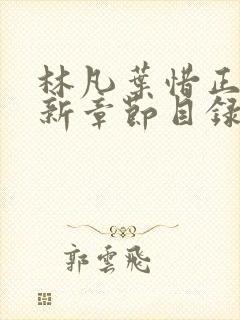 林凡葉惜正
新章節目錄
郭雲飛